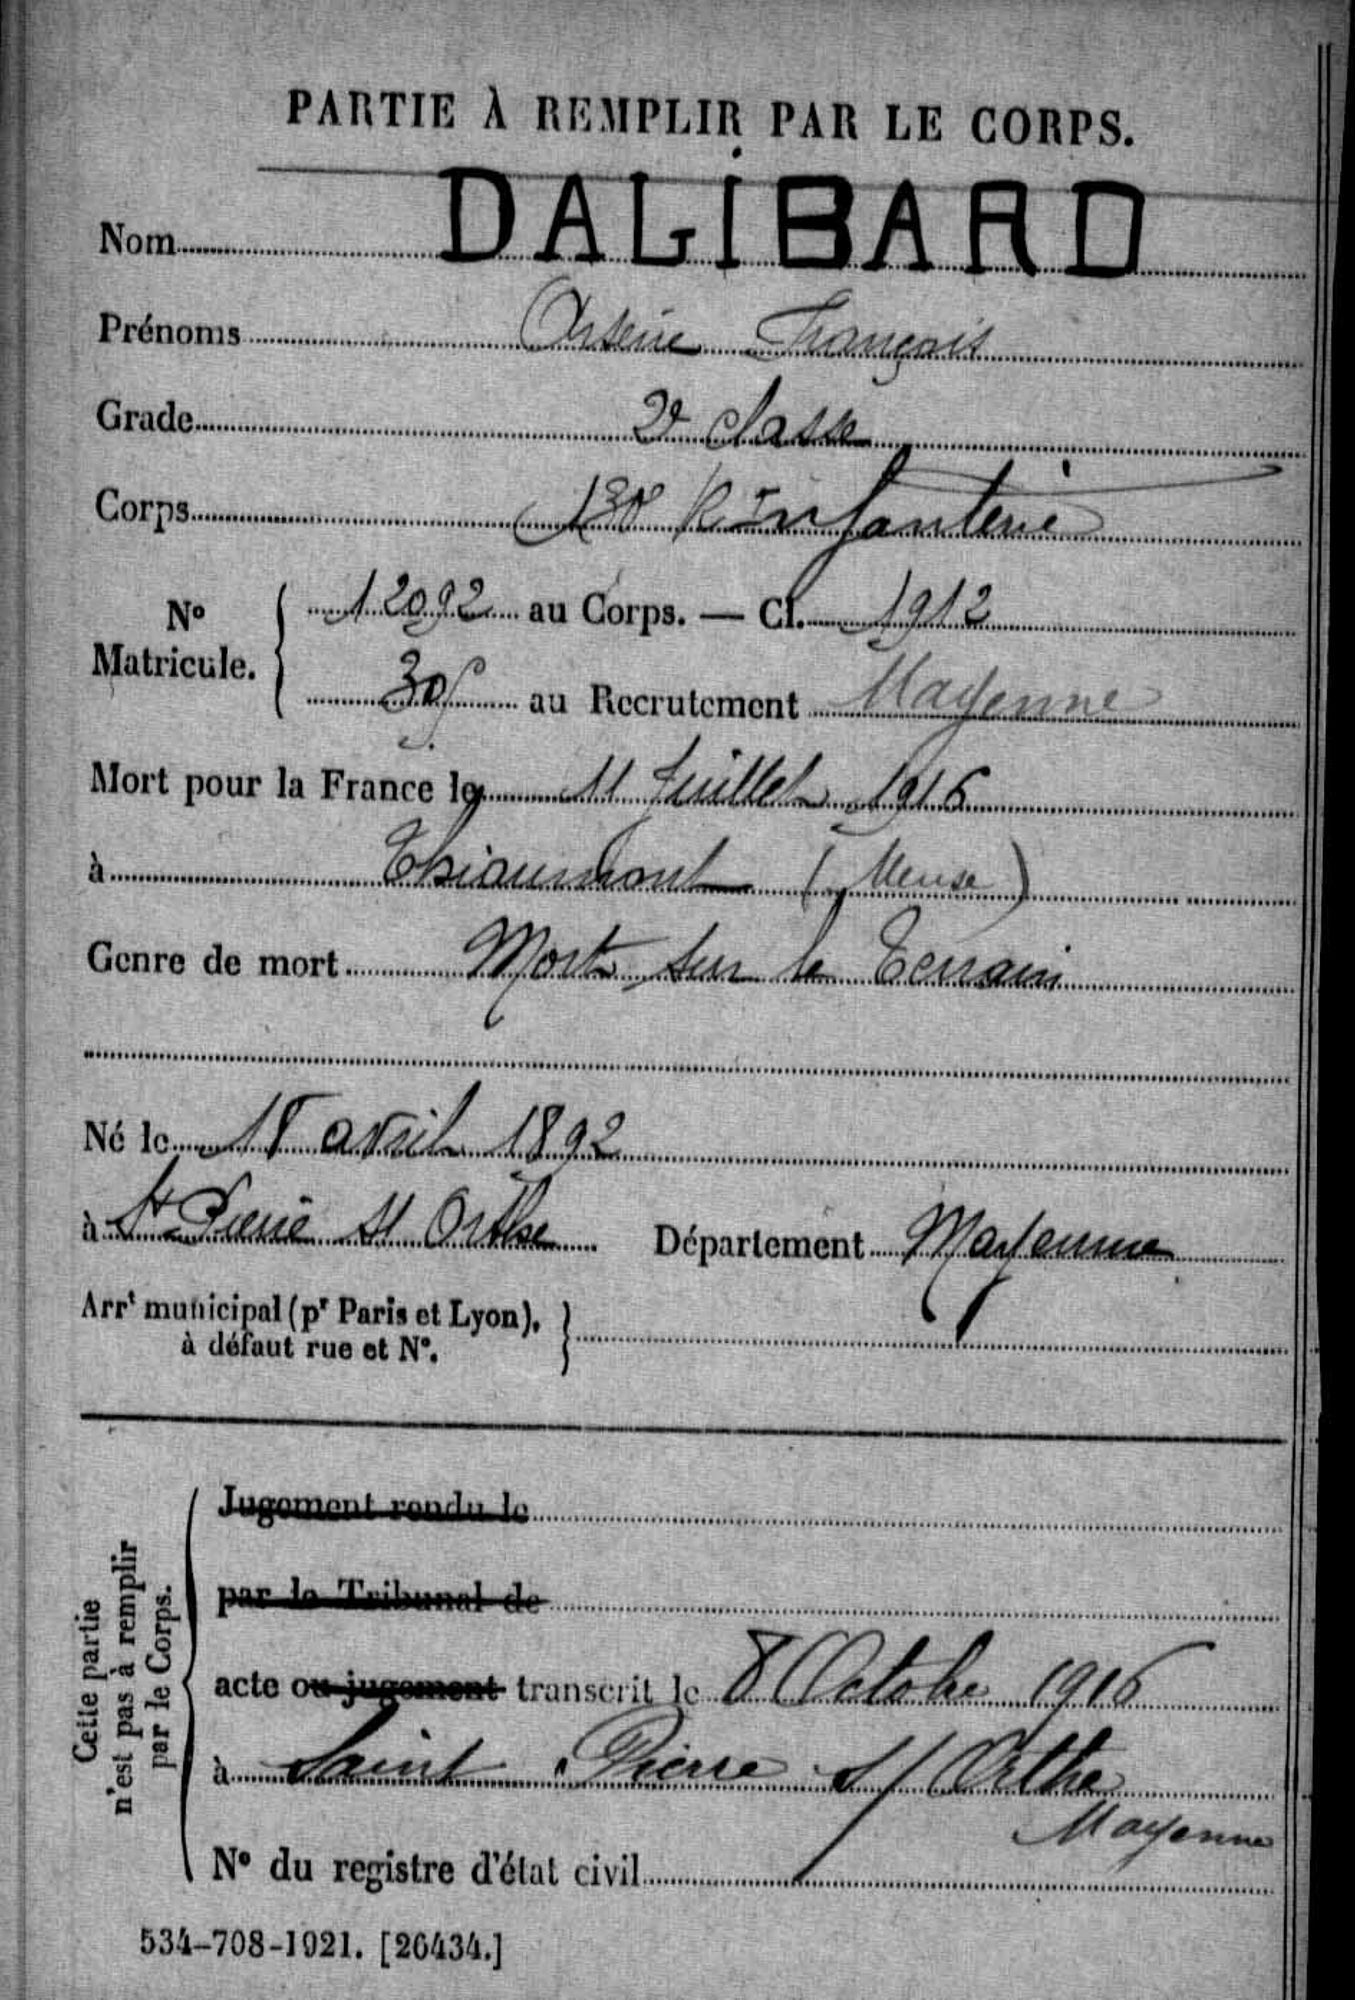 PARTIE À REMPLIR PAR LE CORPS.
Nom DALIBARD
Prénoms Arsène François
Grade 2e classe
Corps 130e R Infanterie
No Matricule. { 12092 au Corps. — Cl. 1912
305 au Recrutement Mayenne
Mort pour la France le 11 Juillet 1916
à Thiaumont (Meuse)
Genre de mort Mort sur le Terrain
Né le avril 1892
à St Pierre s/ Orthe Département Mayenne
Arrt municipal (pr Paris et Lyon), à défaut rue et No. }
Cette partie n'est pas à remplir par le Corps.
Jugement rendu le
par le Tribunal de
acte ou jugement transcrit le 8 Octobre 1916
à Saint Pierre s/ Orthe
Mayenne
No du registre d'état civil
534-708-1921. [26434.]